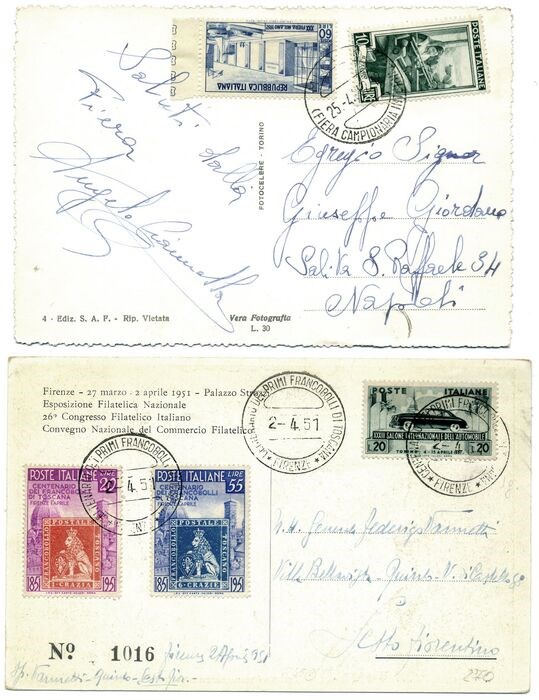 LIRE 60
XXX FIERA MILANO 1952
REPUBBLICA ITALIANA
10
POSTE ITALIANE
25-4
(FIERA CAMPIONARIA IN
Saluti dalla
Fiera
Egregio Signor
Giuseppe Giordano
Salita S. Raffaele 34
Napoli
FOTOCELERE - TORINO
4 - Ediz. S. A. F. - Rip. Vietata
Vera Fotografia
L. 30
Firenze - 27 marzo - 2 aprile 1951 - Palazzo Stroz
Esposizione Filatelica Nazionale
26° Congresso Filatelico Italiano
Convegno Nazionale del Commercio Filatelico
DEI PRIMI FRANCOBOLLI DI TOSCANA
2-4.51
* FIRENZE *
POSTE ITALIANE
XXXIII SALONE INTERNAZIONALE DELL'AUTOMOBILE
20 20
2-4
FIRENZE
DEI PRIMI FRANCOBOLLI
4.51
POSTE ITALIANE
20
CENTENARIO
DEI FRANCOBOLLI
DI TOSCANA
FRANCOBOLLO POSTALE TOSCANO
1 - CRAZIA
1851 1951
POSTE ITALIANE LIRE 55
CENTENARIO
DEI FRANCOBOLLI
DI TOSCANA
FIRENZE APRILE
FRANCOBOLLO POSTALE TOSCANO
6 - CRAZIE
1851 1951
Sesto Fiorentino
Nº 1016 Firenze 2 Aprile 951
270